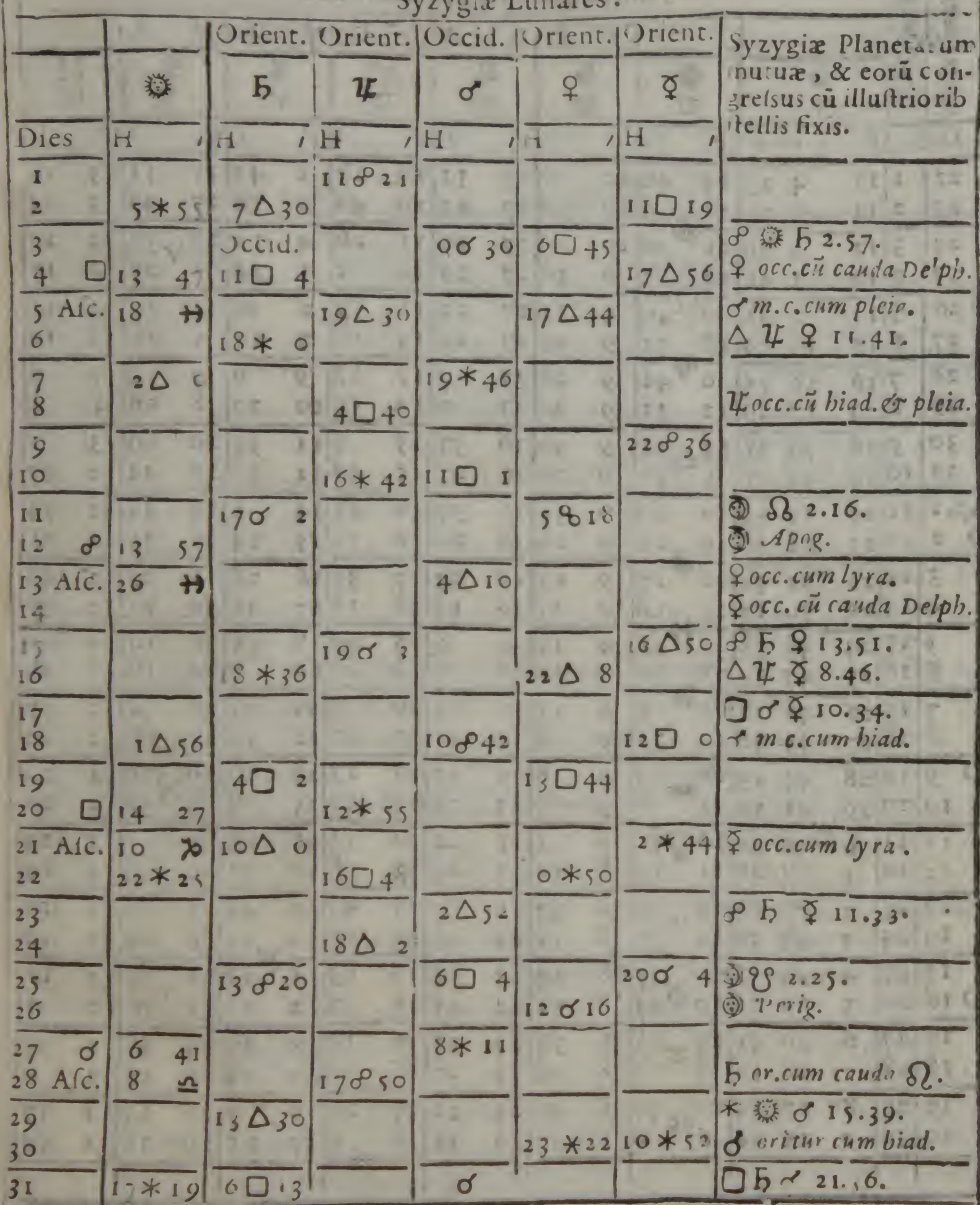 Syzygiæ Lunares.
Orient. Orient. Occid. Orient. Orient. Syzygiæ Planetarum
☉ ♄ ♃ ♂ ♀ ☿ mutuæ, & eorū con-
gressus cū illustriorib
stellis fixis.
Dies H ′ H ′ H ′ H ′ H ′ H ′
1 11☍21
2 5✶55 7△30 11□19
3 Occid. 0☌30 6□45 ☍ ☉ ♄ 2.57.
4 □ 13 47 11□ 4 17△56 ♀ occ.cū cauda Delph.
5 Asc. 18 ♓ 19△30 17△44 ♂ m.c.cum pleia.
6 18✶ 0 △ ♃ ♀ 11.41.
7 2△ 19✶46
8 4□40 ♃ occ.cū hiad.& pleia.
9 22☍36
10 16✶42 11□ 1
11 17☌ 2 5☍18 ☽ ☊ 2.16.
12 ☍ 13 57 ☽ Apog.
13 Asc. 26 ♓ 4△10 ♀ occ.cum lyra.
14 ☿ occ. cū cauda Delph.
15 19☌ 3 16△50 ☍ ♄ ♀ 13.51.
16 18✶36 22△ 8 △ ♃ ☿ 8.46.
17 □ ♂ ♀ 10.34.
18 1△56 10☍42 12□ 0 ♂ m c.cum hiad.
19 4□ 2 13□44
20 □ 14 27 12✶ 55
21 Asc. 10 ♑ 10△ 0 2✶44 ☿ occ.cum lyra.
22 22✶25 16□4 0✶50
23 2△5 ☍ ♄ ☿ 11.33.
24 18△ 2
25 13☍20 6□ 4 20☌ 4 ☽ ☋ 2.25.
26 12☌16 ☽ Perig.
27 ☌ 6 41 8✶ 11
28 Asc. 8 ♎ 17☍50 ♄ or.cum cauda ♌.
29 13△30 ✶ ☉ ♂ 15.39.
30 23✶22 10✶52 ♂ oritur cum hiad.
31 17✶19 6□13 ♂ □ ♄ ♂ 21.